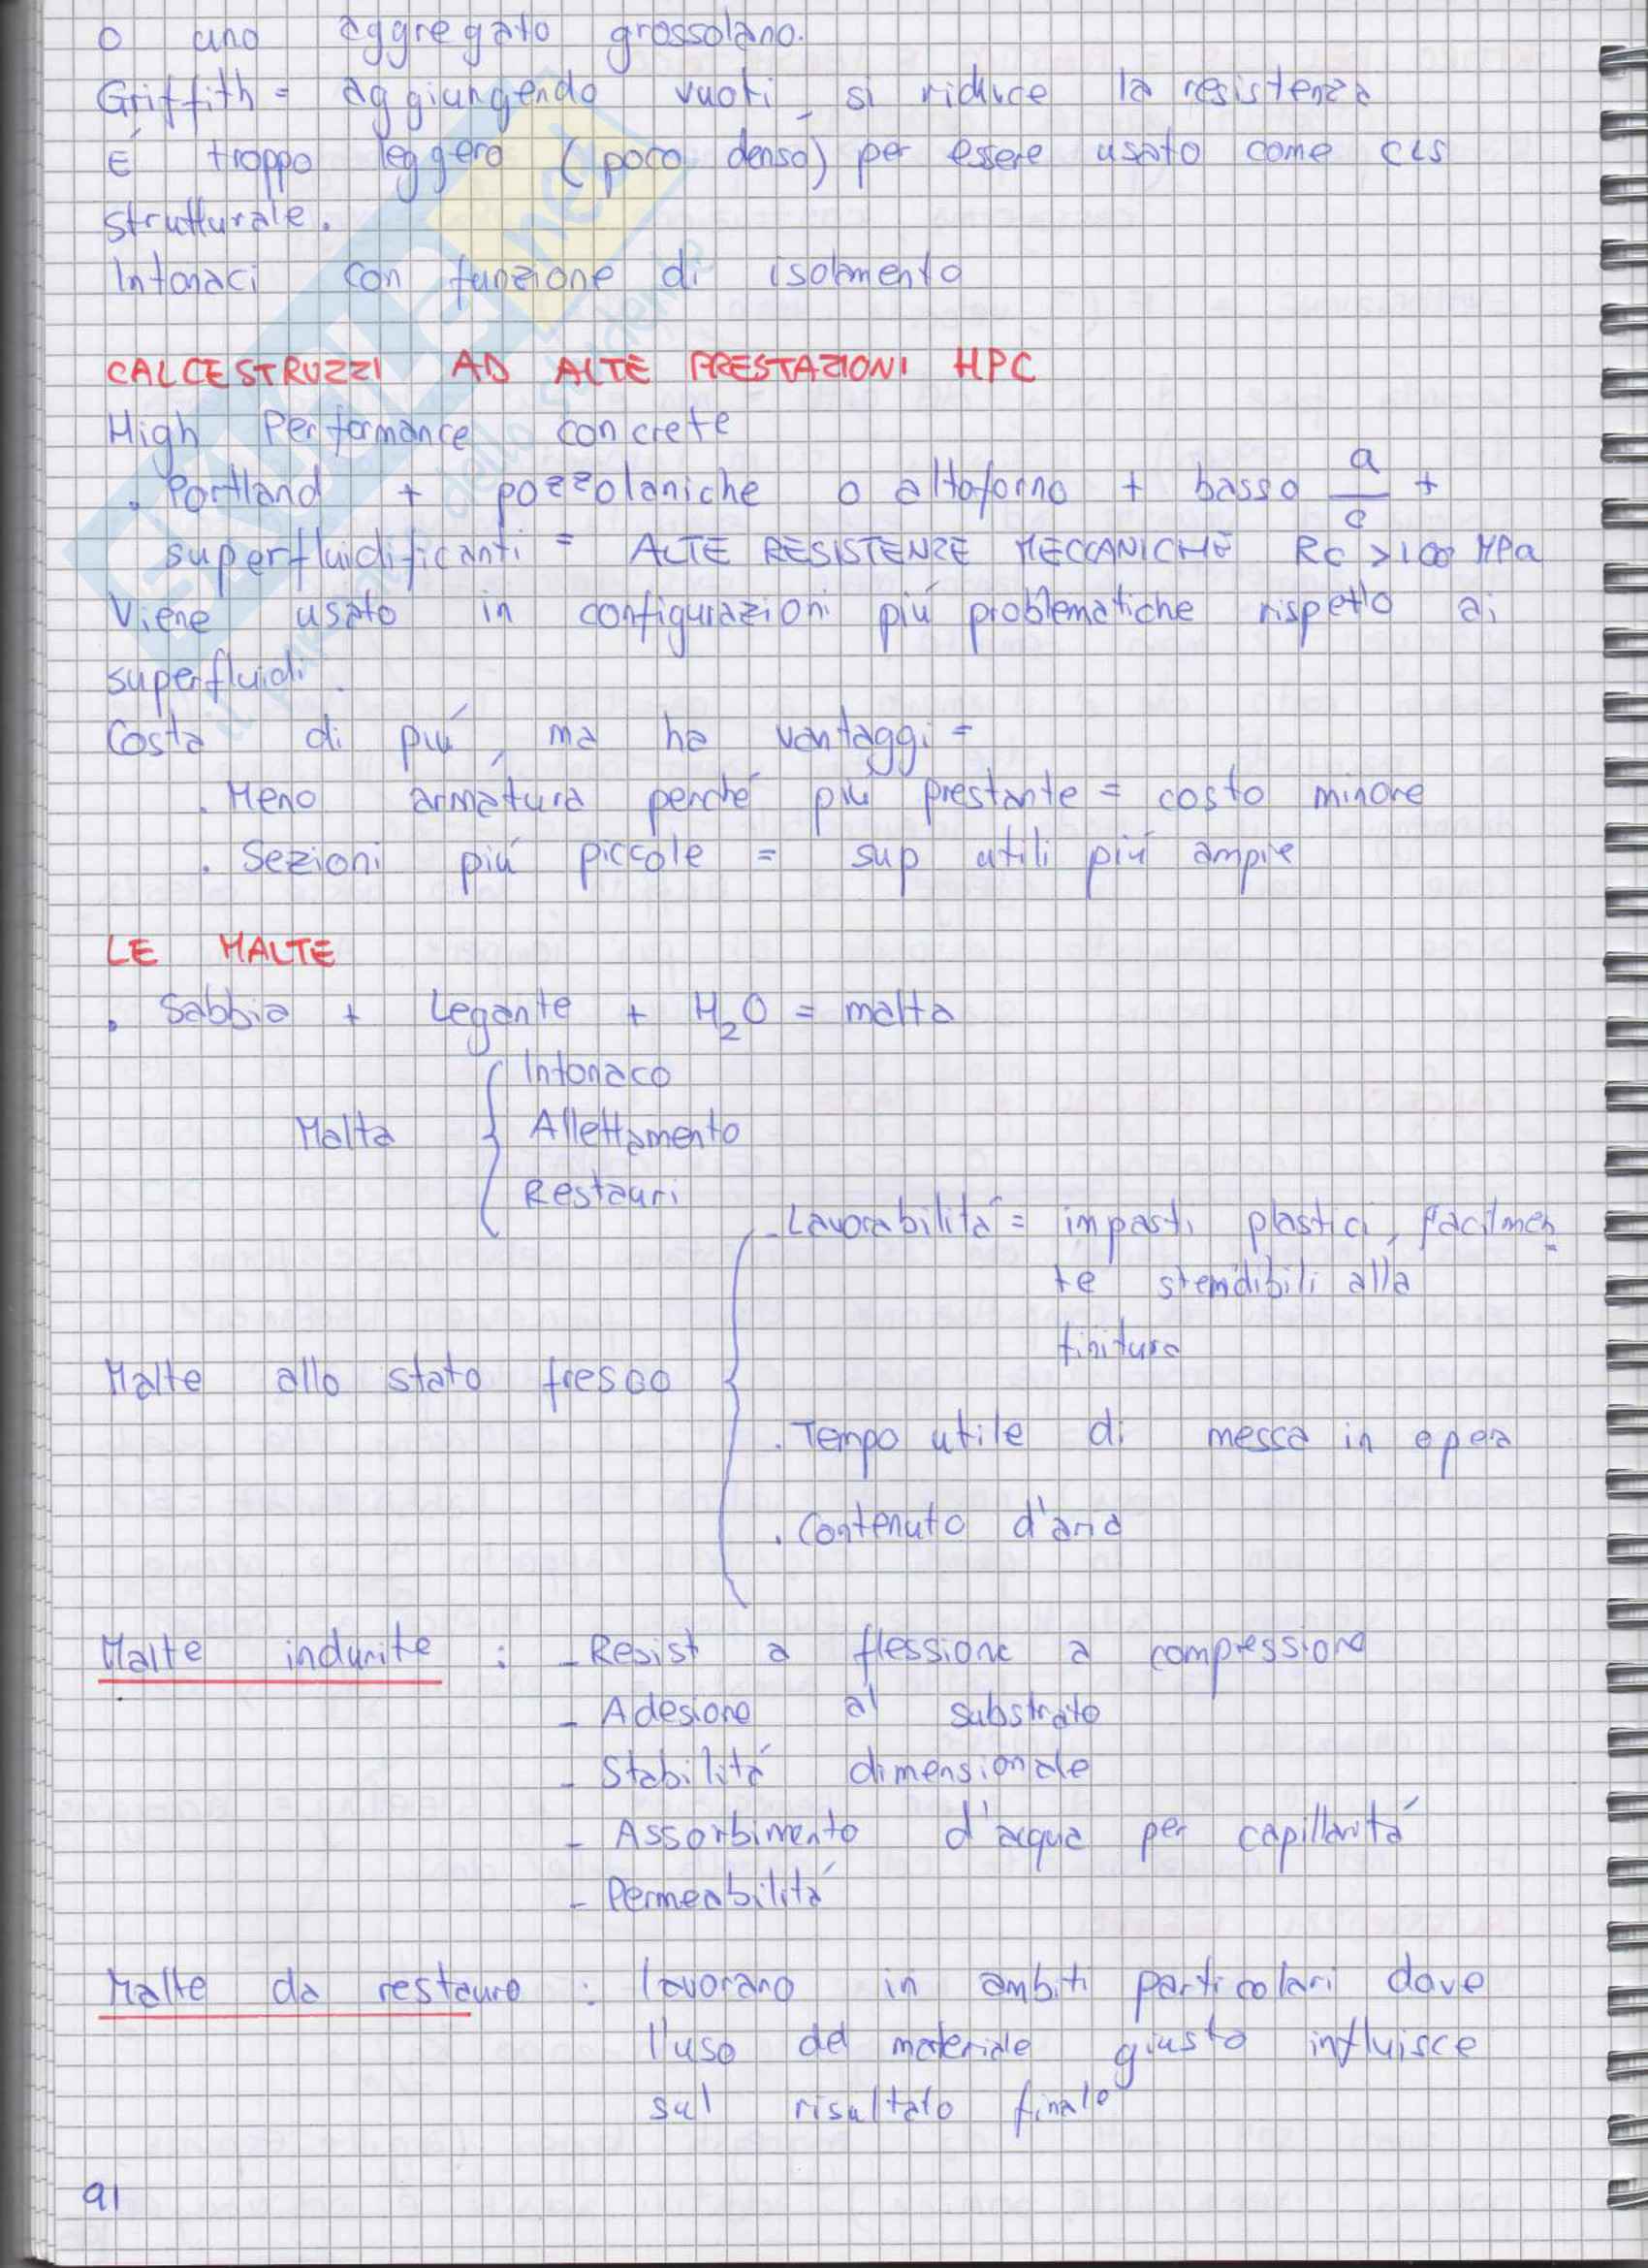 o uno aggregato grossolano.
Griffith = aggiungendo vuoti si riduce la resistenza
É troppo leggero (poco denso) per essere usato come CLS
strutturale.
Intonaci con funzione di isolmento
CALCESTRUZZI AD ALTE PRESTAZIONI HPC
High Performance concrete
. Portland + pozzolaniche o altoforno + basso a/c +
superfluidificanti = ALTE RESISTENZE MECCANICHE Rc > 100 MPa
Viene usato in configurazioni più problematiche rispetto ai
superfluidi.
Costa di più, ma ha vantaggi =
. Meno armatura perché più prestante = costo minore
. Sezioni più piccole = sup utili più ampie
LE MALTE
. Sabbia + Legante + H₂O = malta
Intonaco
Malta { Allettamento
Restauri
- Lavorabilità = impasti plastici, facilmen
te stendibili alla
finitura
Malte allo stato fresco {
. Tempo utile di messa in opera
. Contenuto d'aria
Malte indurite : - Resist a flessione a compressione
- Adesione al substrato
- Stabilità dimensionale
- Assorbimento d'acqua per capillarità
- Permeabilità
Malte da restauro : lavorano in ambiti particolari dove
l'uso del materiale giusto influisce
sul risultato finale
91